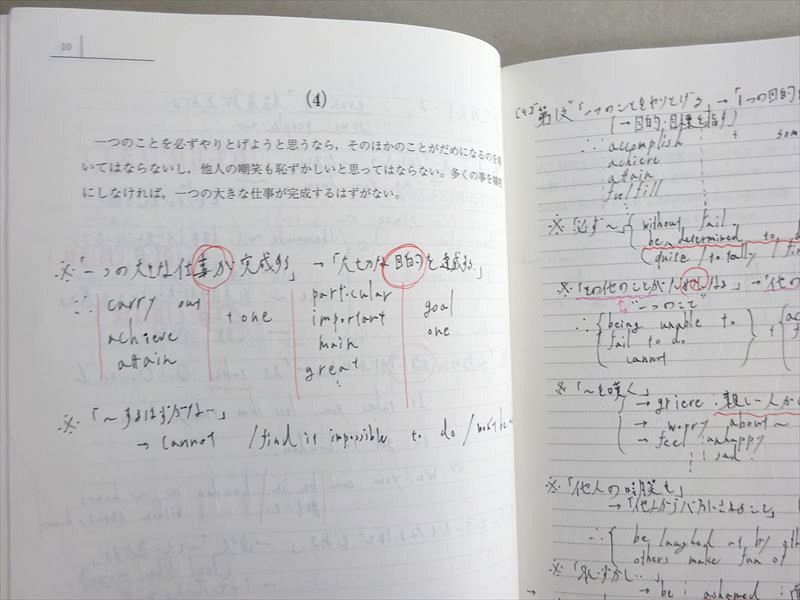 10
(4)
一つのことを必ずやりとげようと思うなら，そのほかのことがだめになるのを嘆
いてはならないし，他人の嘲笑も恥ずかしいと思ってはならない。多くの事を犠牲
にしなければ，一つの大きな仕事が完成するはずがない。
※「一つの大きな仕事が完成する」→「大切な目的を達成する」
∵ carry out
achieve
attain
+ one
particular
important
main
great
goal
one
※「～するはずがない」
→ cannot / find it impossible to do /
第1文「一つのことをやりとげる」→「1つの目的
(→目的・目標を指す)
∵ accomplish + som
achieve
attain
fulfill
※「必ず～ without fail
be determined to d
(quite / totally /
※「その他のことがだめになる」→「他の
"一つのこと"
∵ being unable to
fail to do
cannot
※「～を嘆く」
→ grieve：親しい人が
→ worry about ～
→ feel unhappy
sad
※「他人の嘲笑も」
→「他人からバカにされること」
∵ be laughed at by oth
others make fun of
※「恥ずかし‥」
→ be：ashamed：